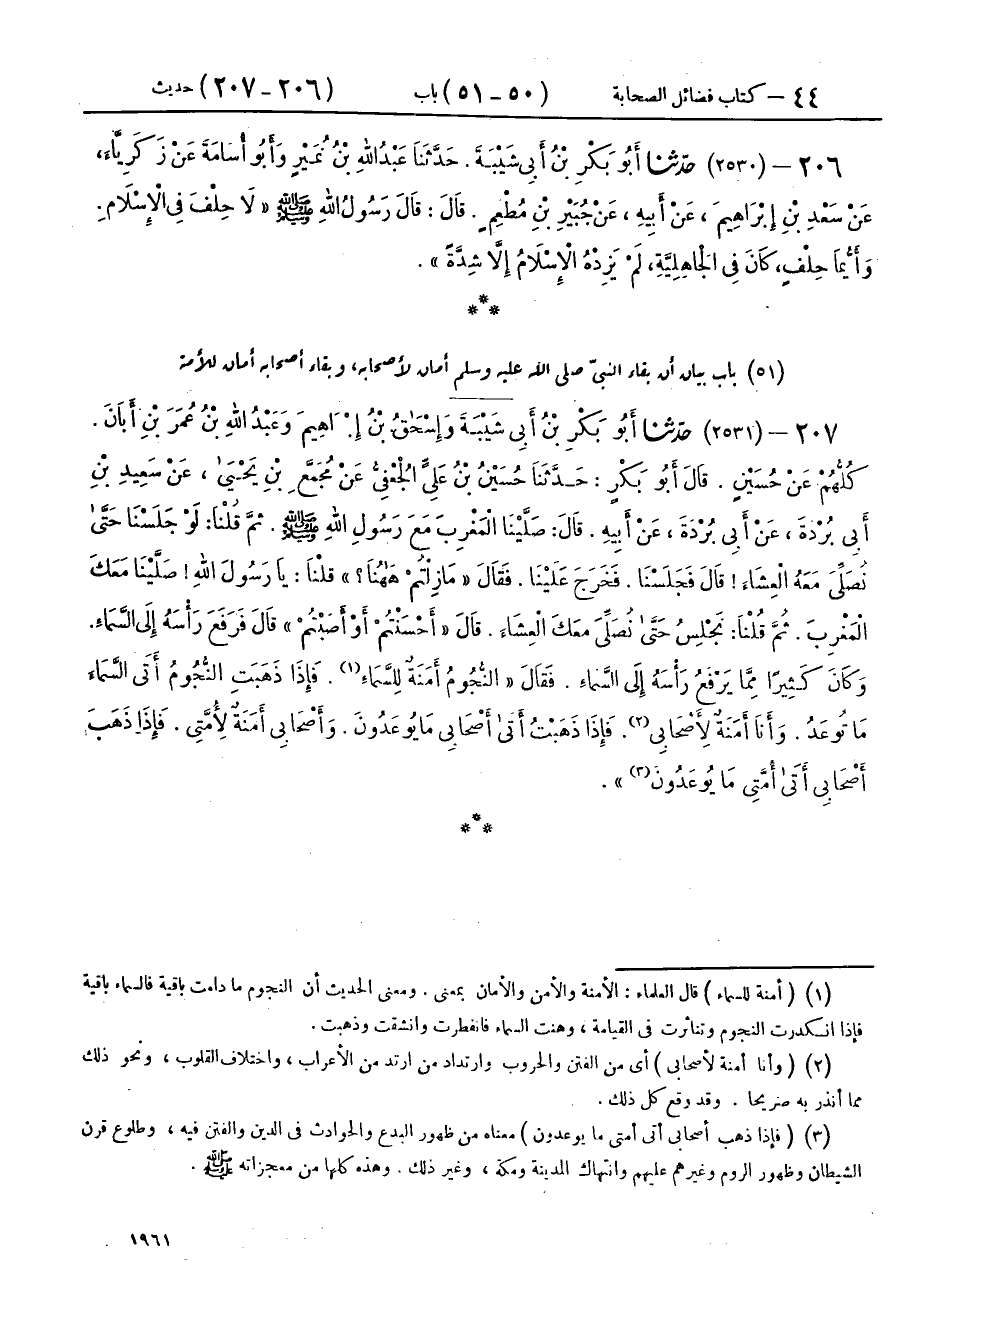 ٤٤ – كتاب فضائل الصحابة (٥٠ – ٥١) باب (٢٠٦ – ٢٠٧) حديث
٢٠٦ – (٢٥٣٠) حَدَّثَنَا أَبُو بَكْرِ بْنُ أَبِي شَيْبَةَ . حَدَّثَنَا عَبْدُ اللهِ بْنُ نُمَيْرٍ وَأَبُو أُسَامَةَ عَنْ زَكَرِيَّاءَ،
عَنْ سَعْدِ بْنِ إِبْرَاهِيمَ ، عَنْ أَبِيهِ ، عَنْ جُبَيْرِ بْنِ مُطْعِمٍ . قَالَ : قَالَ رَسُولُ اللهِ ﷺ « لَا حِلْفَ فِي الْإِسْلَامِ.
وَأَيُّمَا حِلْفٍ، كَانَ فِي الْجَاهِلِيَّةِ، لَمْ يَزِدْهُ الْإِسْلَامُ إِلَّا شِدَّةً » .
***
(٥١) باب بيان أن بقاء النبيّ صلى الله عليه وسلم أمان لأصحابه، وبقاء أصحابه أمان للأمة
٢٠٧ – (٢٥٣١) حَدَّثَنَا أَبُو بَكْرِ بْنُ أَبِي شَيْبَةَ وَإِسْحَاقُ بْنُ إِبْرَاهِيمَ وَعَبْدُ اللهِ بْنُ عُمَرَ بْنِ أَبَانَ .
كُلُّهُمْ عَنْ حُسَيْنٍ . قَالَ أَبُو بَكْرٍ : حَدَّثَنَا حُسَيْنُ بْنُ عَلِيٍّ الْجُعْفِيُّ عَنْ مُجَمَّعِ بْنِ يَحْيَىٰ ، عَنْ سَعِيدِ بْنِ
أَبِي بُرْدَةَ ، عَنْ أَبِي بُرْدَةَ ، عَنْ أَبِيهِ . قَالَ: صَلَّيْنَا الْمَغْرِبَ مَعَ رَسُولِ اللهِ ﷺ . ثُمَّ قُلْنَا: لَوْ جَلَسْنَا حَتَّىٰ
نُصَلِّيَ مَعَهُ الْعِشَاءَ ! قَالَ فَجَلَسْنَا . فَخَرَجَ عَلَيْنَا . فَقَالَ « مَازِلْتُمْ هَٰهُنَا؟ » قُلْنَا : يَا رَسُولَ اللهِ ! صَلَّيْنَا مَعَكَ
الْمَغْرِبَ . ثُمَّ قُلْنَا: نَجْلِسُ حَتَّىٰ نُصَلِّيَ مَعَكَ الْعِشَاءَ . قَالَ « أَحْسَنْتُمْ أَوْ أَصَبْتُمْ » قَالَ فَرَفَعَ رَأْسَهُ إِلَى السَّمَاءِ.
وَكَانَ كَثِيرًا مِمَّا يَرْفَعُ رَأْسَهُ إِلَى السَّمَاءِ . فَقَالَ « النُّجُومُ أَمَنَةٌ لِلسَّمَاءِ (١) . فَإِذَا ذَهَبَتِ النُّجُومُ أَتَى السَّمَاءَ
مَا تُوعَدُ . وَأَنَا أَمَنَةٌ لِأَصْحَابِي (٢) . فَإِذَا ذَهَبْتُ أَتَىٰ أَصْحَابِي مَا يُوعَدُونَ . وَأَصْحَابِي أَمَنَةٌ لِأُمَّتِي . فَإِذَا ذَهَبَ
أَصْحَابِي أَتَىٰ أُمَّتِي مَا يُوعَدُونَ (٣) » .
***
(١) ( أمنة للسماء ) قال العلماء : الأمنة والأمن والأمان بمعنى . ومعنى الحديث أن النجوم ما دامت باقية فالسماء باقية
فإذا انكدرت النجوم وتناثرت فى القيامة ، وهنت السماء فانفطرت وانشقت وذهبت .
(٢) ( وأنا أمنة لأصحابى ) أى من الفتن والحروب وارتداد من ارتد من الأعراب ، واختلاف القلوب ، ونحو ذلك
مما أنذر به صريحا . وقد وقع كل ذلك .
(٣) ( فإذا ذهب أصحابى أتى أمتى ما يوعدون ) معناه من ظهور البدع والحوادث فى الدين والفتن فيه ، وطلوع قرن
الشيطان وظهور الروم وغيرهم عليهم وانتهاك المدينة ومكة ، وغير ذلك . وهذه كلها من معجزاته ﷺ .
١٩٦١